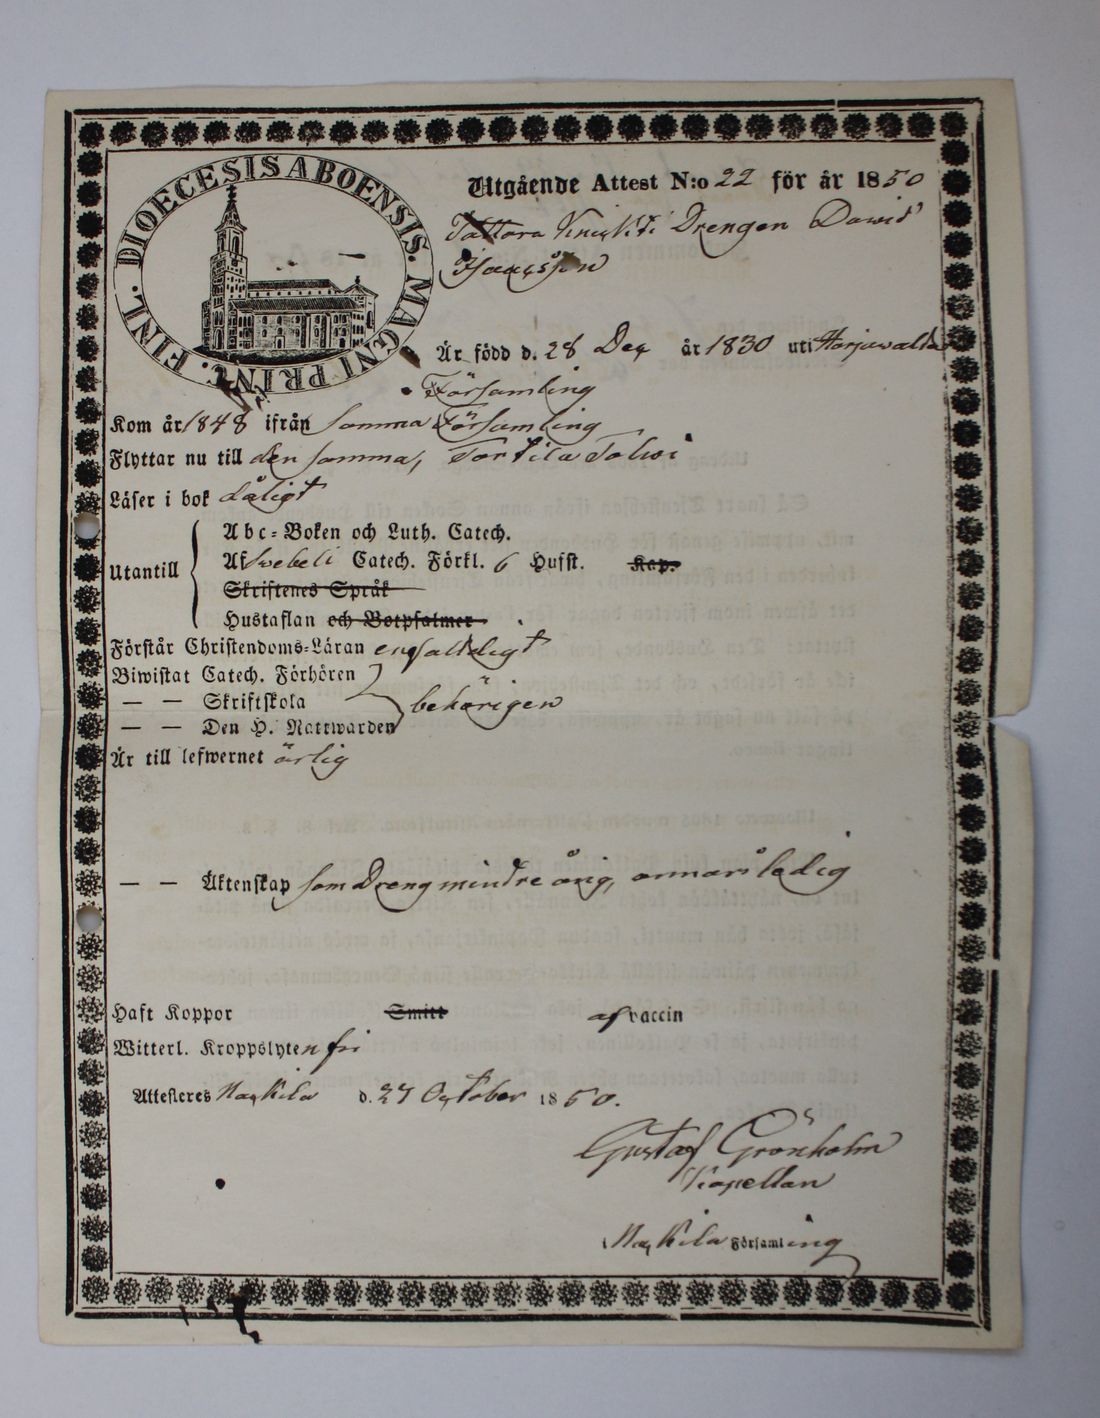 DIOECESIS ABOENSIS. MAGNI PRINC. FINL.
Utgående Attest N:o 22 för år 1850
Drengen David
Isacsson
Är född d. 28 Dec år 1830 uti Harjawalda
Församling
Kom år 1848 ifrån samma Församling
Flyttar nu till den samma, Torttila Tolwi
Läser i bok dåligt
Utantill
Abc-Boken och Luth. Catech.
Af Svebeli Catech. Förkl. 6 Hufst. Kap.
Skriftenes Språk
Hustaflan och Botpsalmer
Förstår Christendoms-Läran enfalldeligt
Biwistat Catech. Förhören
— — Skriftskola behörigen
— — Den H. Nattwarden
Är till lefwernet ärlig
— — Äktenskap som Dreng mindre årig, annars ledig
Haft Koppor Smitt af vaccin
Witterl. Kroppslyten fri
Attesteres Nackila d. 27 October 1850.
Gustaf Grönholm
Kapellan
Nackila Församling